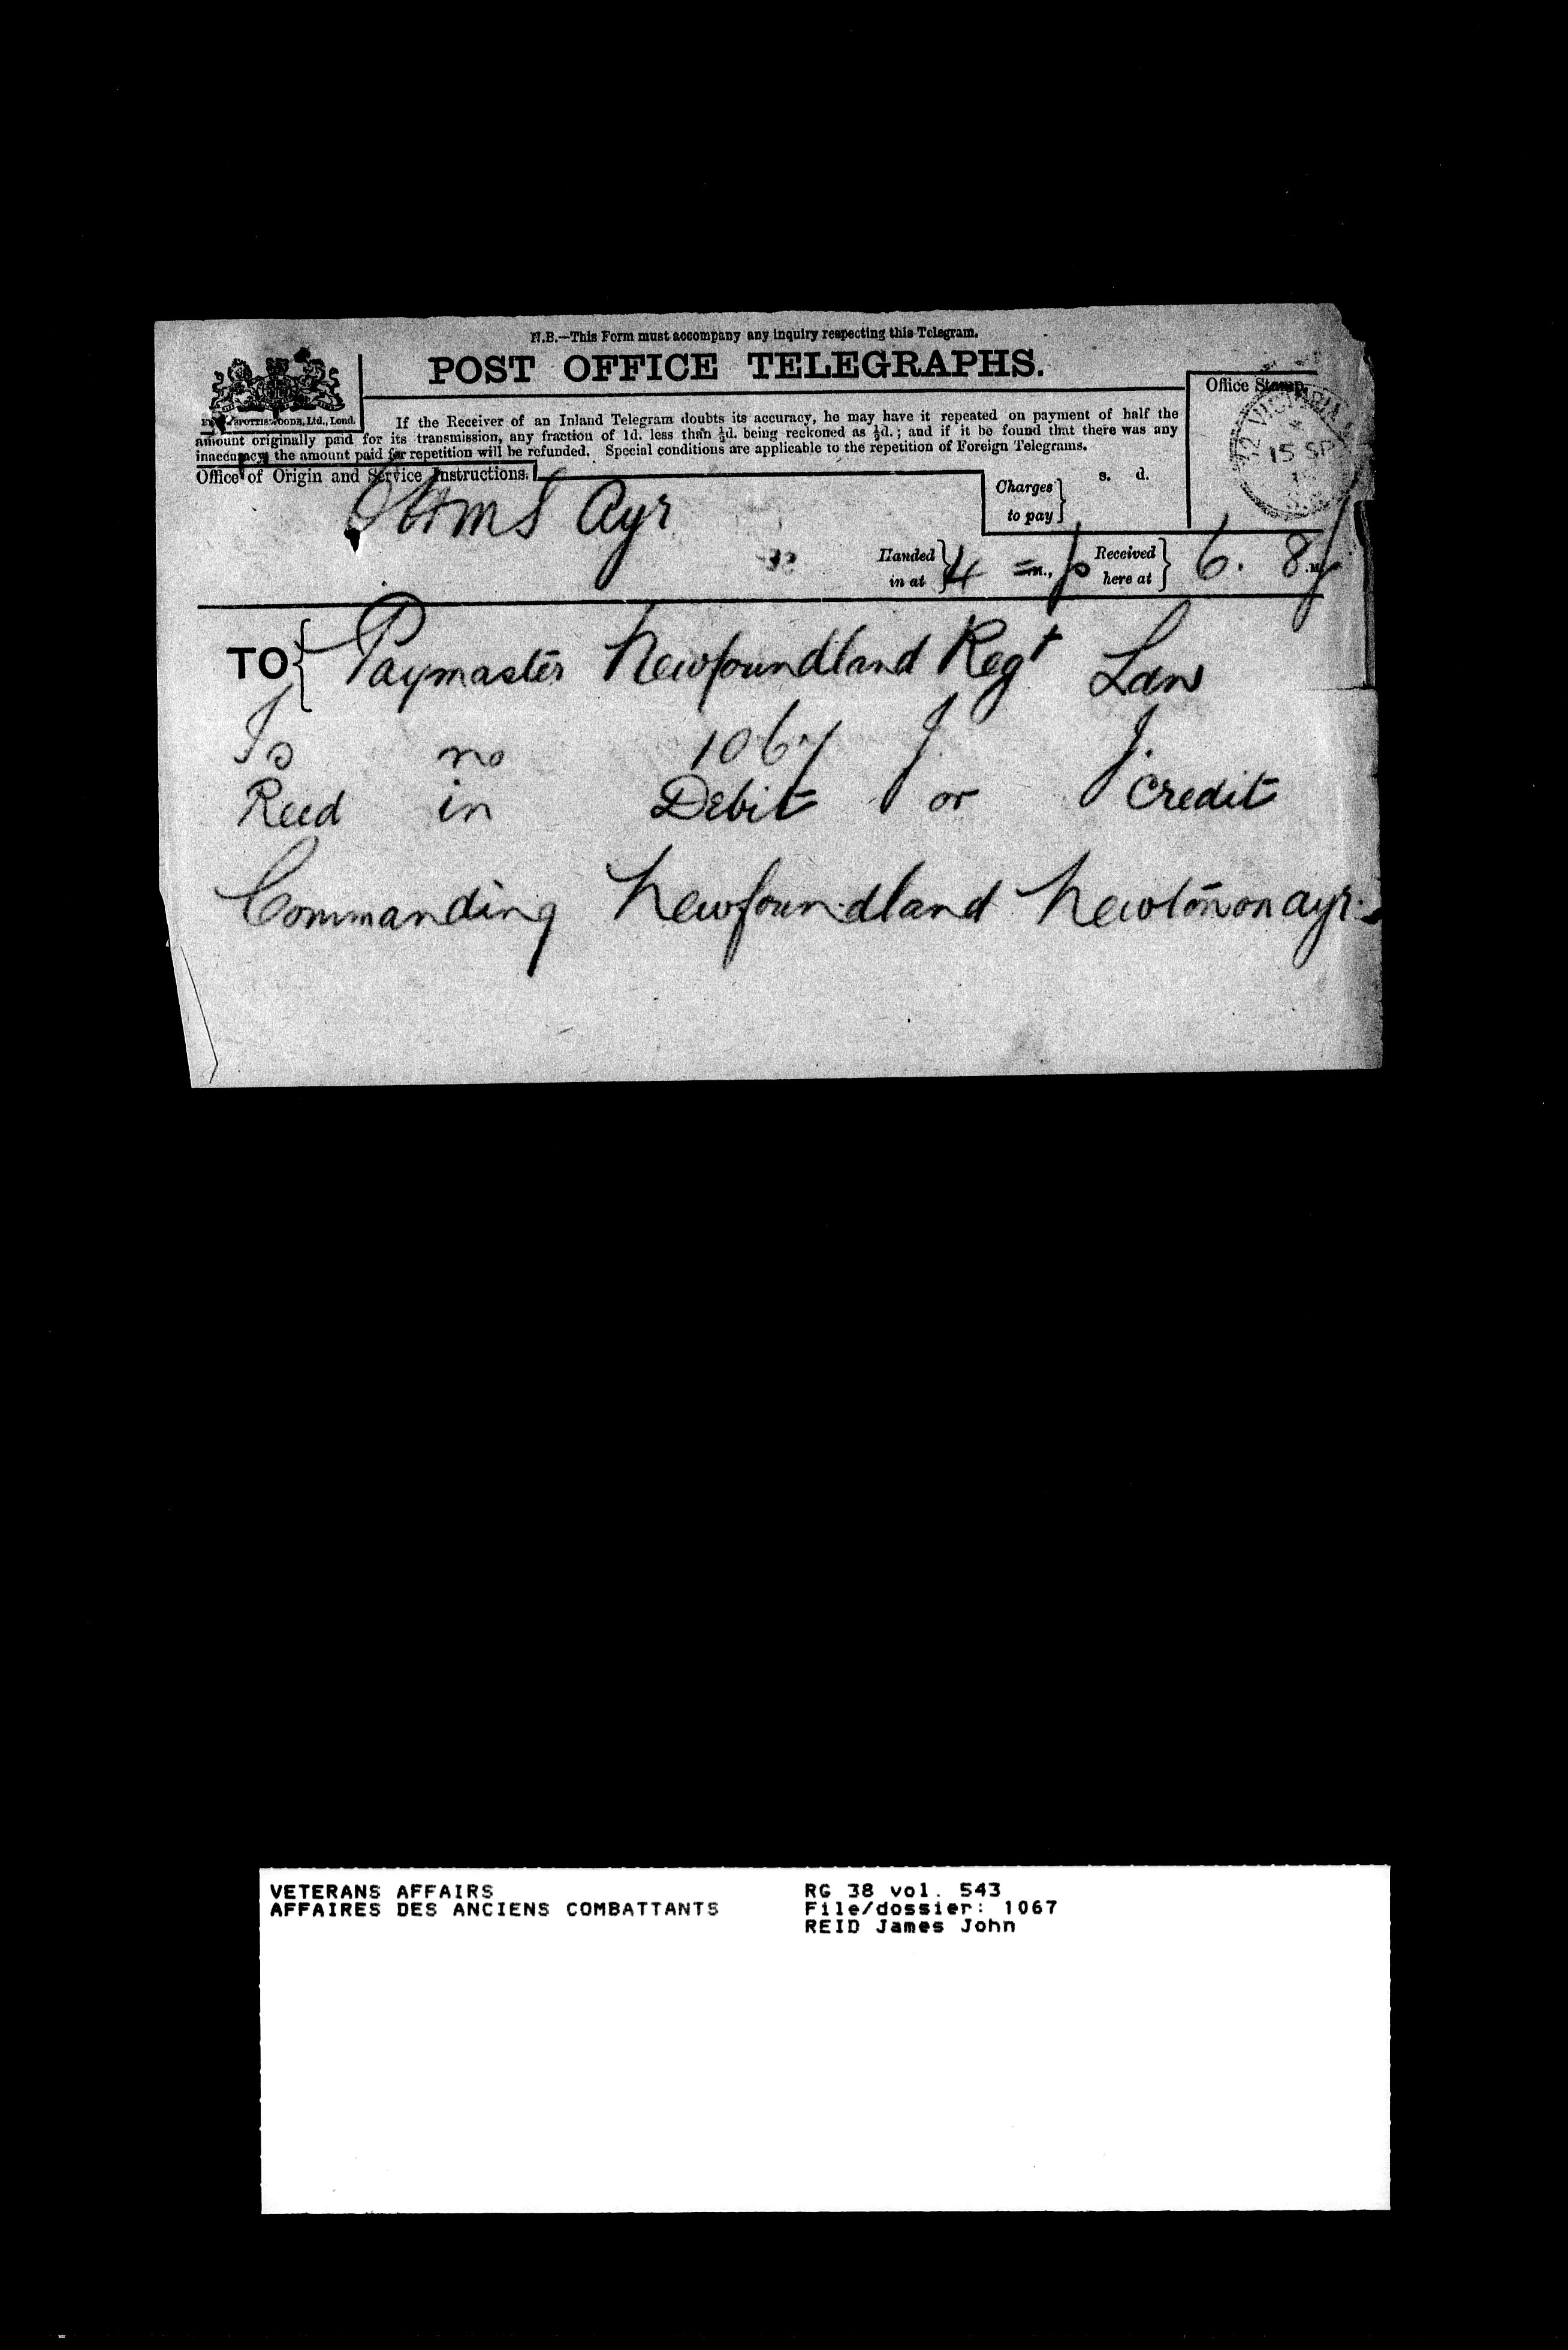 N.B.—This Form must accompany any inquiry respecting this Telegram.
POST OFFICE TELEGRAPHS.
Office Stamp.
SPOTTISWOODE, Ltd., Lond.
If the Receiver of an Inland Telegram doubts its accuracy, he may have it repeated on payment of half the
amount originally paid for its transmission, any fraction of 1d. less than ½d. being reckoned as ½d.; and if it be found that there was any
inaccuracy, the amount paid for repetition will be refunded. Special conditions are applicable to the repetition of Foreign Telegrams.
VICTORIA
15 SP
Office of Origin and Service Instructions.
OHMS Ayr
Charges to pay } s. d.
Handed in at } 4 p M., Received here at } 6. 8 p .M.
TO { Paymaster Newfoundland Regt Ldn
Is no 1067 J. J.
Reed in Debit or Credit
Commanding Newfoundland Newtononayr.
VETERANS AFFAIRS
AFFAIRES DES ANCIENS COMBATTANTS
RG 38 vol. 543
File/dossier: 1067
REID James John